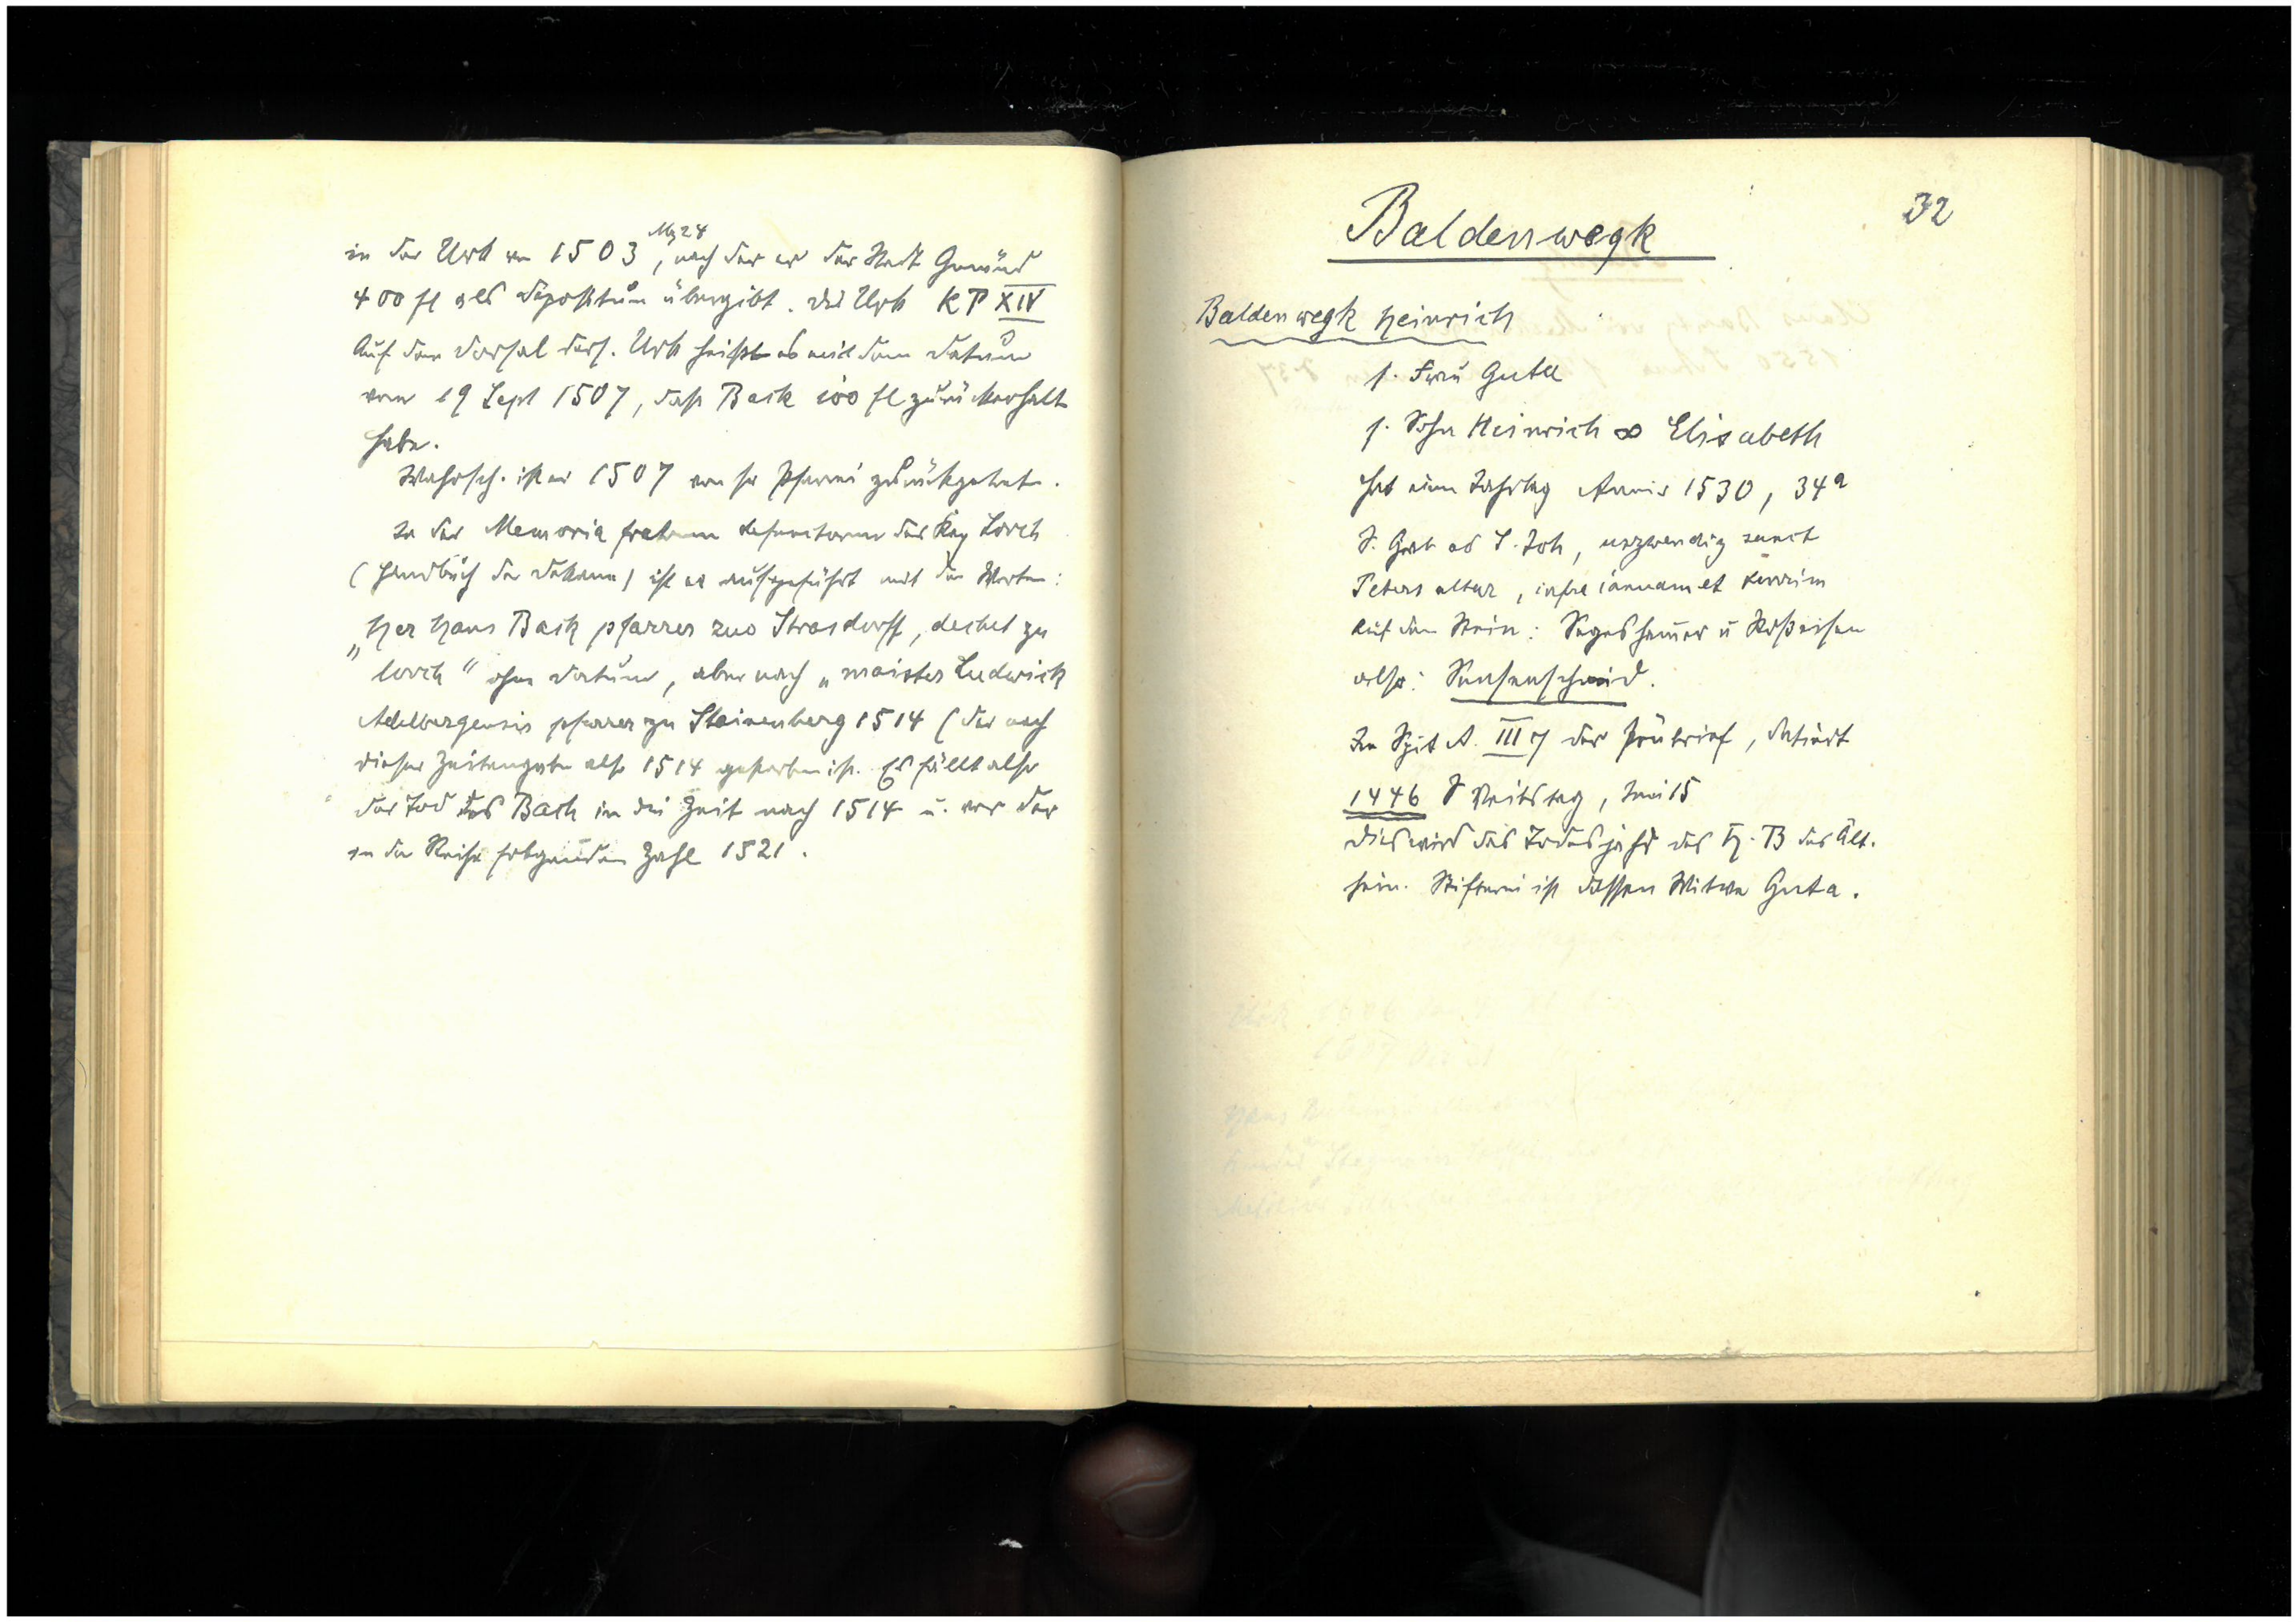 in der Urk von 1503 Mz 24, nach der er der Stadt Gmünd
400 fl als Depositum übergibt. Die Urk KP XIV
Auf dem Dorsal ders. Urk heißt es mit dem Datum
vom 19 Sept 1507, daß Back 100 fl zurückerhalt
habe.
Wahrsch. ist er 1507 von sr Pfarrei zurückgetreten.
In der Memoria fratrum defunctorum des Kap Lorch
(Handbuch der Dekane) ist er aufgeführt mit den Worten:
„Her Hans Back pfarrer zuo Strasdorff, dechet zu
lorch" ohne Datum, aber nach „maister Ludwick
Adelbergensis pfarrer zu Steinenberg 1514 (der nach
dieser Zeitangabe also 1514 gestorben ist. Es fällt also
der Tod des Back in die Zeit nach 1514 u. vor der
in der Reihe folgenden Zahl 1521.
32
Baldenwegk
Baldenwegk Heinrich
s. Frau Guta
s. Sohn Heinrich ∞ Elisabeth
hat einen Jahrtag Annis 1530, 34a
S. Grab ob S. Joh, uszwendig sanct
Peters altar, infra ianuam et
Auf dem Stein: Segeshamer u Stoßeisen
also: Sensenschmid.
In Spit A. III 7 der Pfrübrief, datiert
1446 S Veitstag, Juni 15
Dies wird das Todesjahr des H. B des Ält.
sein. Stifterin ist dessen Witwe Guta.